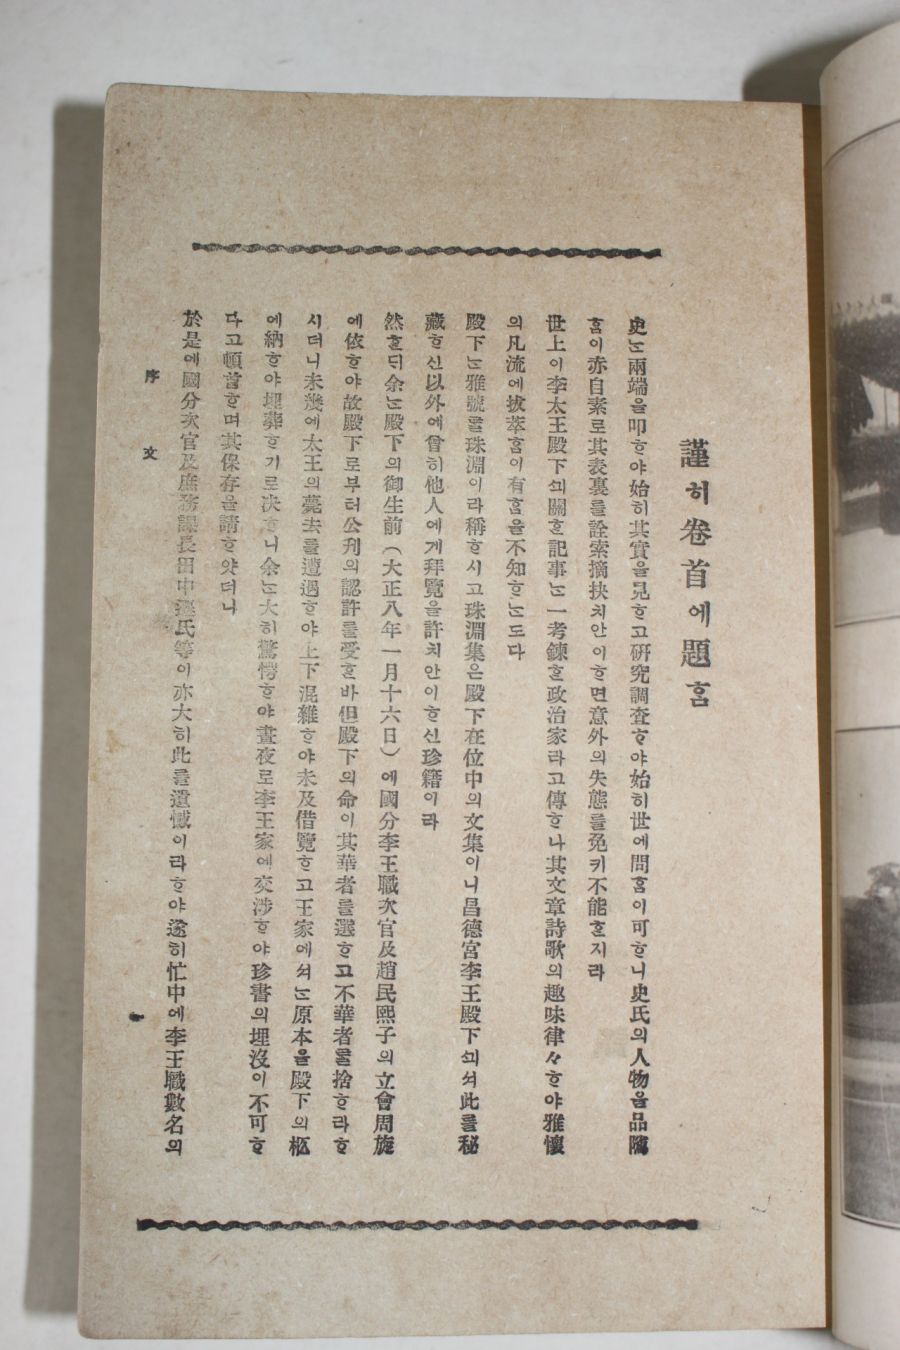 謹히卷首에題홈
史는兩端을叩ᄒᆞ야始히其實을見ᄒᆞ고硏究調査ᄒᆞ야始히世에問홈이可ᄒᆞ니史氏의人物을品隲
홈이亦自素로其表裏를詮索摘抉치안이ᄒᆞ면意外의失態를免키不能ᄒᆞᆯ지라
世上이李太王殿下ᄭᅴ關ᄒᆞᆫ記事는一考鍊ᄒᆞᆫ政治家라고傳ᄒᆞ나其文章詩歌의趣味律々ᄒᆞ야雅懷
의凡流에拔萃홈이有홈을不知ᄒᆞ는도다
殿下는雅號를珠淵이라稱ᄒᆞ시고珠淵集은殿下在位中의文集이니昌德宮李王殿下ᄭᅴ셔此를秘
藏ᄒᆞ신以外에曾히他人에게拜覽을許치안이ᄒᆞ신珍籍이라
然ᄒᆞᆫ듸余는殿下의御生前(大正八年一月十六日)에國分李王職次官及趙民熙子의立會周旋
에依ᄒᆞ야故殿下로부터公刋의認許를受ᄒᆞᆫ바但殿下의命이其華者를選ᄒᆞ고不華者를捨ᄒᆞ라ᄒᆞ
시더니未幾에太王의薨去를遭遇ᄒᆞ야上下混雜ᄒᆞ야未及借覽ᄒᆞ고王家에셔는原本을殿下의柩
에納ᄒᆞ야埋葬ᄒᆞ기로决ᄒᆞ니余는大히驚愕ᄒᆞ야晝夜로李王家에交涉ᄒᆞ야珍書의埋沒이不可ᄒᆞ
다고頓首ᄒᆞ며其保存을請ᄒᆞ얏더니
於是에國分次官及庶務課長田中遷氏等이亦大히此를遺憾이라ᄒᆞ야遂히忙中에李王職數名의
序 文